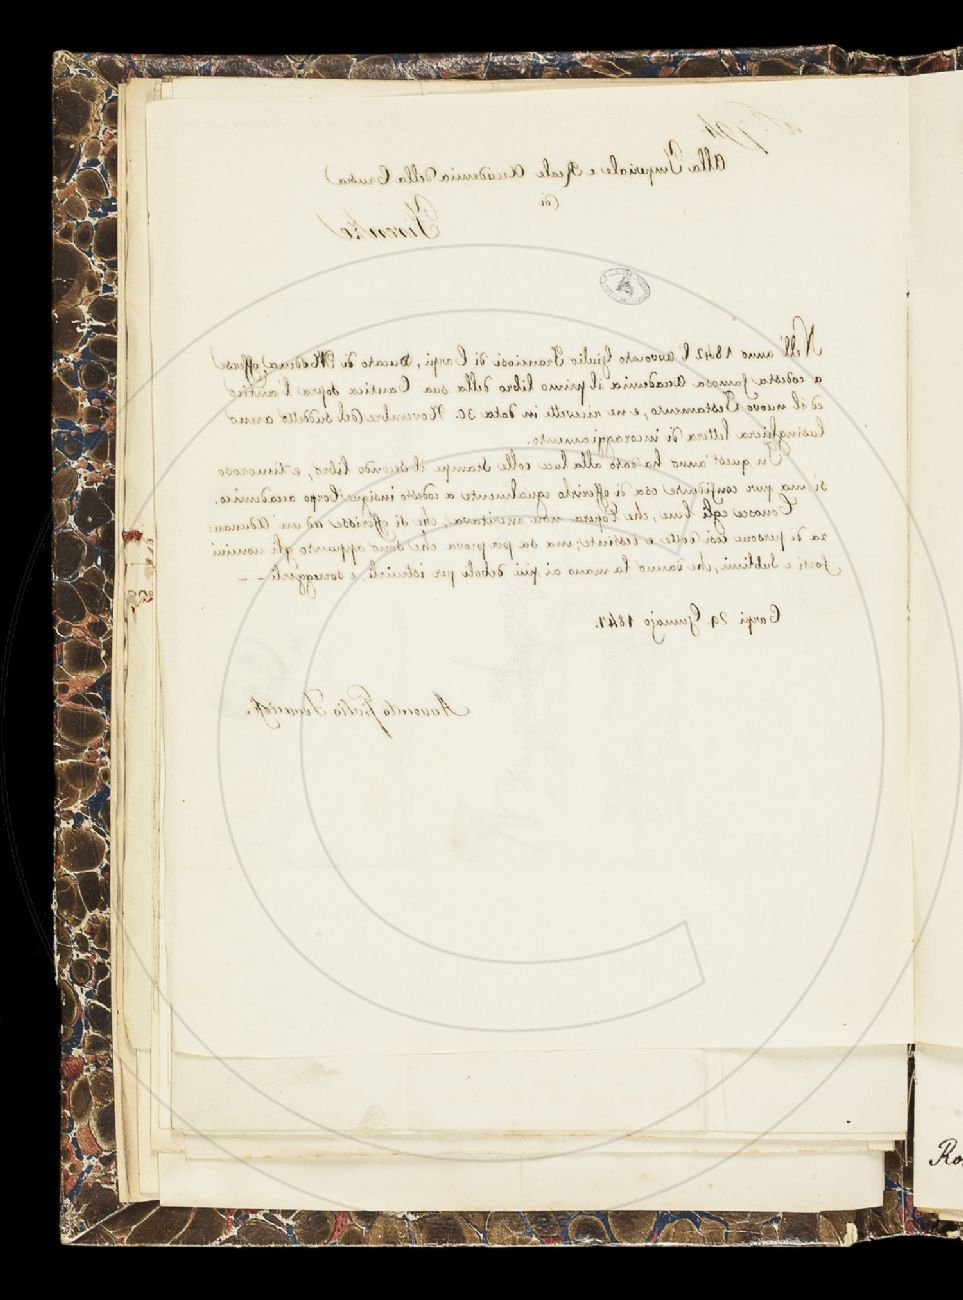 N.° 194
Alla Imperiale e Reale Accademia della Crusca
di
Firenze
Nell' anno 1842 l'avvocato Giulio di Carpi, Ducato di Modena offerse
a codesta famosa Accademia il primo libro della sua Cantica sopra l'antico
ed il nuovo Testamento, e ne riscontrò in data 30. Novembre del suddetto anno
lusinghiera lettera di incoraggiamento.
In quest' anno ha dato alla luce colle stampe il secondo libro, e timoroso
si ma pur confidente osa di offerirlo egualmente a codesto insigne Corpo accademico.
Conosce egli bene, che l'opera non meritava, che di offrisse ad un' Adunan:
za di persone così dotte e distinte; ma sa per prova che sono appunto gli uomini
forti e sublimi, che danno la mano ai più deboli per istruirli e sorreggerli - -
Carpi 29 1847.
Avvocato Giulio
Ro